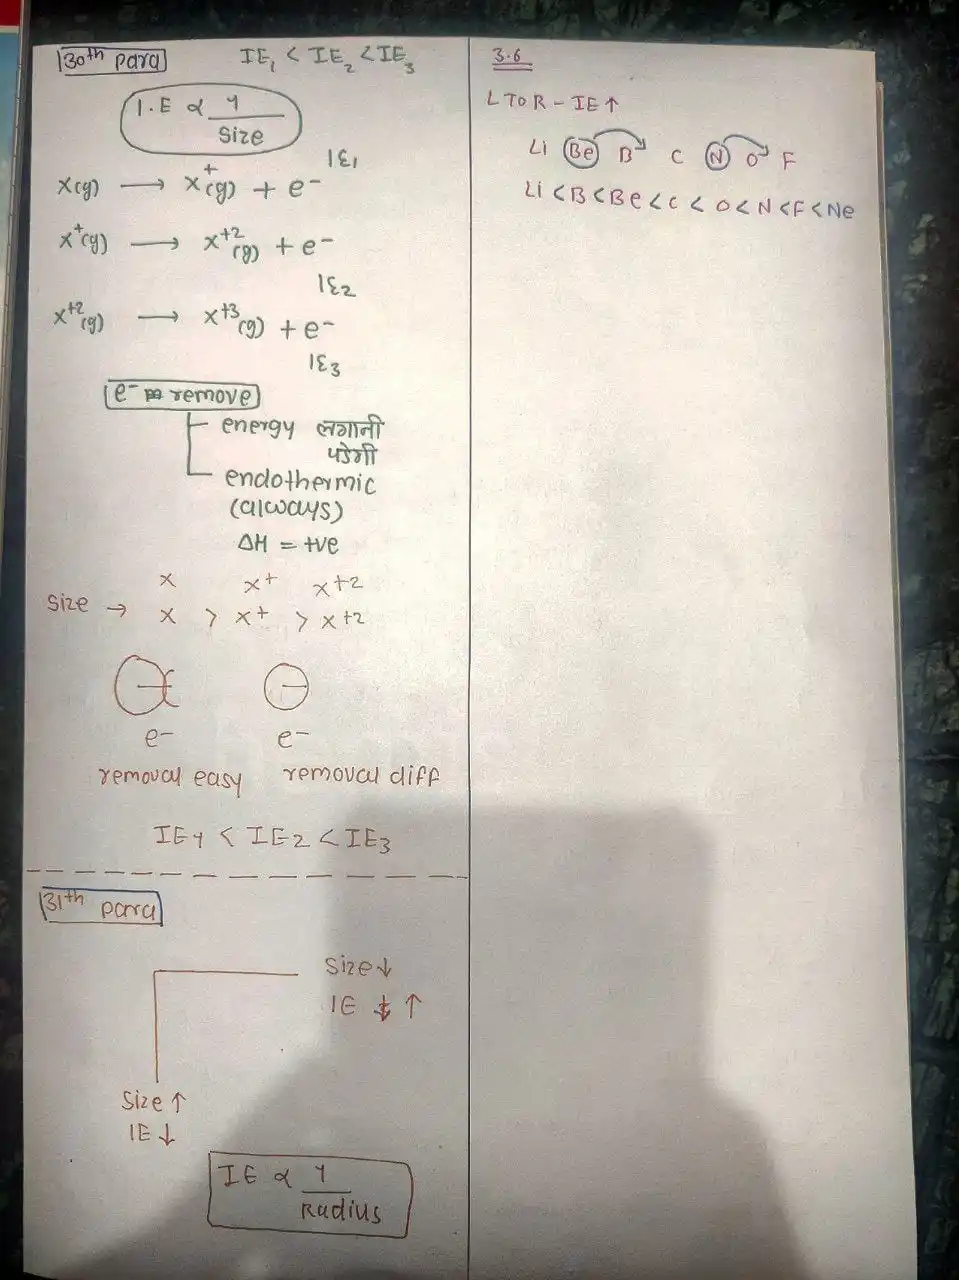 30th para
IE₁ < IE₂ < IE₃
I.E ∝ 1/size
X(g) → X⁺(g) + e⁻ IE1
X⁺(g) → X⁺²(g) + e⁻
IE2
X⁺²(g) → X⁺³(g) + e⁻
IE3
e⁻ remove
energy लगानी
पडेगी
endothermic
(always)
ΔH = +ve
X X⁺ X⁺²
Size → X > X⁺ > X⁺²
e⁻ e⁻
removal easy removal diff
IE1 < IE2 < IE3
31th para
Size↓
IE ↑
Size ↑
IE ↓
IE ∝ 1/Radius
3.6
L TO R - IE ↑
Li Be B C N O F
Li < B < Be < C < O < N < F < Ne